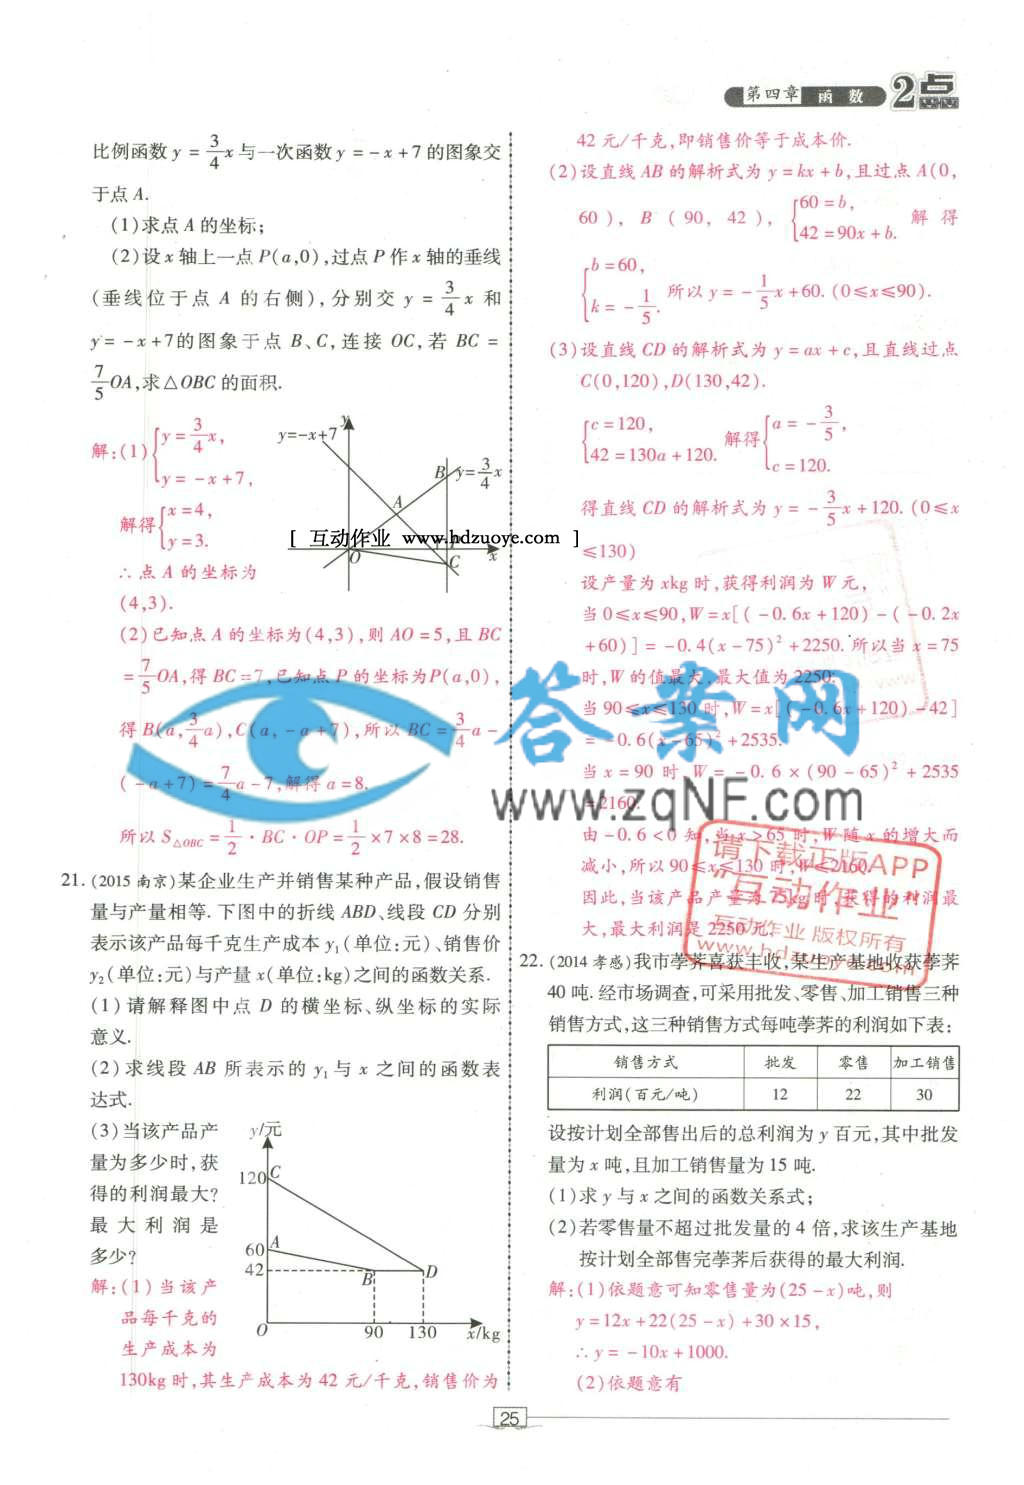 第四章 函数 2点
比例函数 y = 3/4 x 与一次函数 y = -x+7 的图象交
于点 A.
(1)求点 A 的坐标;
(2)设 x 轴上一点 P(a,0),过点 P 作 x 轴的垂线
(垂线位于点 A 的右侧),分别交 y = 3/4 x 和
y = -x+7的图象于点 B、C,连接 OC,若 BC =
7/5 OA,求△OBC 的面积.
解:(1){y = 3/4 x,
y = -x+7,
解得{x = 4,
y = 3.
∴点 A 的坐标为
(4,3).
y=-x+7 y
B y=3/4 x
A
[ 互动作业 www.hdzuoye.com ]
O x
C
(2)已知点 A 的坐标为(4,3),则 AO = 5,且 BC
= 7/5 OA,得 BC = 7,已知点 P 的坐标为P(a,0),
得 B(a, 3/4 a),C(a, -a+7),所以 BC = 3/4 a -
(-a+7) = 7/4 a - 7,解得 a = 8.
所以 S△OBC = 1/2 · BC · OP = 1/2 × 7 × 8 = 28.
21. (2015 南京)某企业生产并销售某种产品,假设销售
量与产量相等. 下图中的折线 ABD、线段 CD 分别
表示该产品每千克生产成本 y₁(单位:元)、销售价
y₂(单位:元)与产量 x(单位:kg)之间的函数关系.
(1)请解释图中点 D 的横坐标、纵坐标的实际
意义.
(2)求线段 AB 所表示的 y₁ 与 x 之间的函数表
达式.
(3)当该产品产
量为多少时,获
得的利润最大?
最大利润是
多少?
y/元
120 C
60 A
42
B D
O 90 130 x/kg
解:(1)当该产
品每千克的
生产成本为
130kg 时,其生产成本为 42 元/千克,销售价为
42 元/千克,即销售价等于成本价.
(2)设直线 AB 的解析式为 y = kx + b,且过点 A(0,
60),B(90,42),{60 = b,
42 = 90x + b. 解得
{b = 60,
k = - 1/5. 所以 y = - 1/5 x+60. (0≤x≤90).
(3)设直线 CD 的解析式为 y = ax + c,且直线过点
C(0,120),D(130,42).
{c = 120,
42 = 130a + 120. 解得{a = - 3/5,
c = 120.
得直线 CD 的解析式为 y = - 3/5 x + 120. (0≤x
≤130)
设产量为 xkg 时,获得利润为 W 元,
当 0≤x≤90,W = x[(-0.6x+120)-(-0.2x
+60)] = -0.4(x-75)²+2250. 所以当 x = 75
时,W 的值最大,最大值为 2250.
当 90≤x≤130 时,W = x[(-0.6x+120)-42]
= -0.6(x-65)²+2535.
当 x = 90 时,W = -0.6×(90-65)²+2535
=2160.
由 -0.6<0 知,当 x>65 时,W 随 x 的增大而
减小,所以 90≤x≤130 时,W≤2160.
因此,当该产品产量为 75kg 时,获得的利润最
大,最大利润是 2250 元.
答案网
www.zqNF.com
请下载正版APP
“互动作业”
互动作业 版权所有
www.hdzuoye.com
22. (2014 孝感)我市荸荠喜获丰收,某生产基地收获荸荠
40 吨. 经市场调查,可采用批发、零售、加工销售三种
销售方式,这三种销售方式每吨荸荠的利润如下表:
销售方式 批发 零售 加工销售
利润(百元/吨) 12 22 30
设按计划全部售出后的总利润为 y 百元,其中批发
量为 x 吨,且加工销售量为 15 吨.
(1)求 y 与 x 之间的函数关系式;
(2)若零售量不超过批发量的 4 倍,求该生产基地
按计划全部售完荸荠后获得的最大利润.
解:(1)依题意可知零售量为(25-x)吨,则
y = 12x+22(25-x)+30×15,
∴y = -10x+1000.
(2)依题意有
25